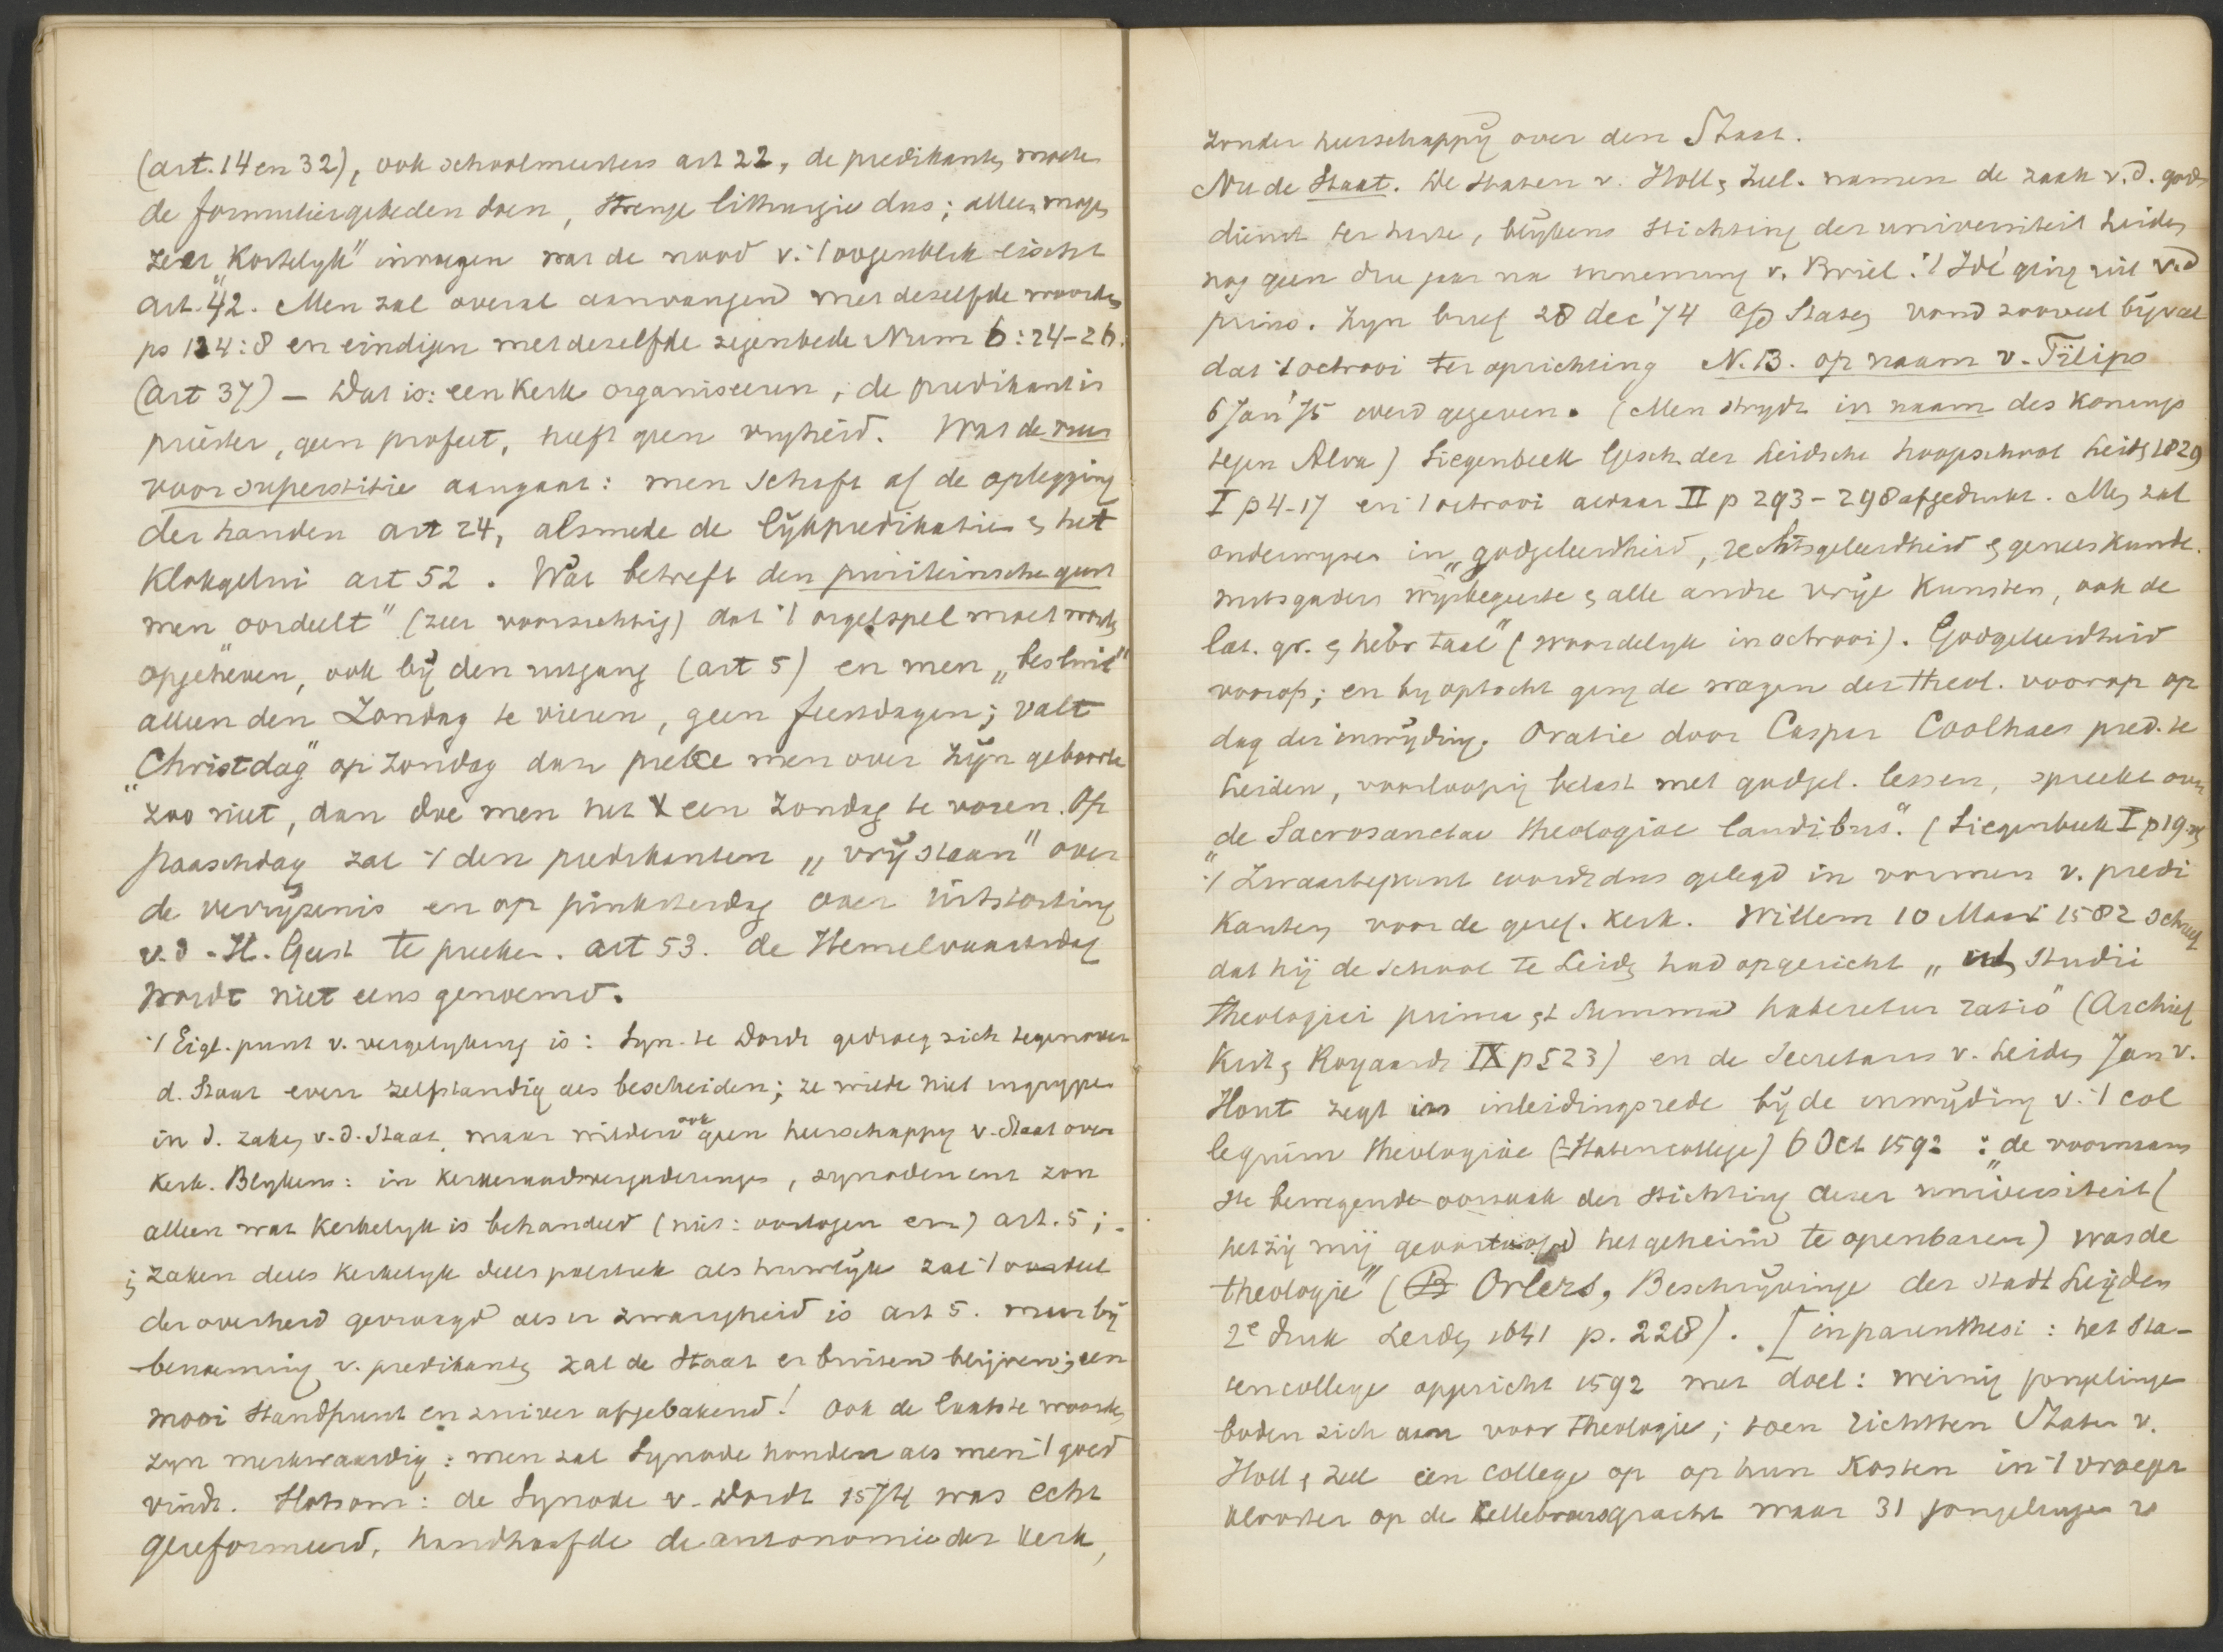 (art. 14 en 32), ook schoolmeesters art 22, de predikanten moeten
de formuliergebeden doen, strenge lithurgie dus; alleen mogen
zeer „kortelyk" invoegen wat de nood v. 't oogenblik eischt
art. 42. Men zal overal aanvangen met deselfde woorden
ps 124:8 en eindigen met deselfde zegenbede Num 6:24-26.
(art 37) — Dat is: een Kerk organiseeren; de predikant is
priester, geen profeet, heeft geen vryheid. Wat de vrees
voor superstitie aangaat: men schaft af de oplegging
der handen art 24, alsmede de lijkpredikatie en het
klokgelui art 52. Wat betreft den puriteinsche geest
men „oordeelt" (zeer voorzichtig) dat 't orgelspel moet worden
opgeheven, ook bij den uitgang (art 5) en men „besluit"
alleen den Zondag te vieren, geen feestdagen; valt
„Christdag" op Zondag dan preke men over zijn geboorte
zoo niet, dan doe men het een Zondag te voren. Op
paaschdag zal 't den predikanten „vrij staan" over
de verrijzenis en op pinksterdag over uitstorting
v. d. H. Geest te preeken. art 53. de Hemelvaartsdag
wordt niet eens genoemd.
't Eigl. punt v. vergelyking is: Syn. te Dordt gedroeg zich tegenover
d. Staat even zelfstandig als bescheiden; ze wilde niet ingrypen
in d. zaken v. d. Staat, maar wilden ook geen heerschappy v. Staat over
Kerk. Blykens: in kerkeraadsvergaderingen, synoden enz zou
alleen wat Kerkelyk is behandeld (niet: oorlogen enz) art. 5;
in zaken deels kerkelyk deels politiek als huwelijk zal 't oordeel
der overheid gevraagd als er zwarigheid is art 5. maar bij
benoeming v. predikanten zal de Staat er buiten blijven; een
mooi standpunt en zuiver afgebakend! Ook de laatste woorden
zyn merkwaardig: men zal Synode houden als men 't goed
vindt. Hotsom: de Synode v. Dordt 1574 was echt
gereformeerd, handhaafde de autonomie der kerk,
zonder heerschappij over den Staat.
Nu de Staat. De Staten v. Holl en Zeel. namen de zaak v. d. gods
dienst ter harte, blijkens stichting der universiteit Leiden
nog geen drie jaar na inneming v. Briel. 't Idé ging uit v. d
prins. Zyn brief 28 dec '74 a/d Staten vond zooveel bijval
dat 't octrooi ter oprichting N.B. op naam v. Filips
6 Jan '75 werd gegeven. (Men strydt in naam des Konings
tegen Alva) Siegenbeek Gesch. der Leidsche hoogeschool Leiden 1829
I p 4-17 en 't octrooi aldaar II p 293-298 afgedrukt. Men zal
onderwyzen in „godgeleerdheid, rechtsgeleerdheid en geneeskunde.
mitsgaders wijsbegeerte en alle andre vrije Kunsten, ook de
lat. gr. en hebr taal" (woordelyk in octrooi). Godgeleerdheid
voorop; en by optocht ging de wagen der theol. voorop op
dag der inwijding. Oratie door Caspar Coolhaes pred. te
Leiden, voorloopig belast met godgel. lessen, spreekt over
„de Sacrosanctae theologiae laudibus". (Siegenbeek I p 19.
't Zwaartepunt wordt dus gelegd in vormen v. predi
kanten voor de geref. Kerk. Willem 10 Maart 1582 schreef
dat hij de school te Leiden had opgericht „ut studii
theologici prima et summa haberetur ratio" (Archief
Kist en Royaards IX p 523) en de secretaris v. Leiden Jan v.
Hout zegt in inleidingsrede bij de inwijding v. 't col
legium theologiae (= Statencollege) 6 Oct 1592: „de voornaam
ste bewegende oorzaak der stichting dezer universiteit (
het zij mij geoorloofd het geheim te openbaren) was de
theologie" (Orlers, Beschrijvinge der stadt Leijden
2e druk Leiden 1641 p. 228). [in parenthesi: het Sta-
tencollege opgericht 1592 met doel: weinig jongelingen
boden zich aan voor theologie; toen richtten Staten v.
Holl en Zeel een college op op hun Kosten in 't vroeger
klooster op de Cellebroersgracht waar 31 jongelingen